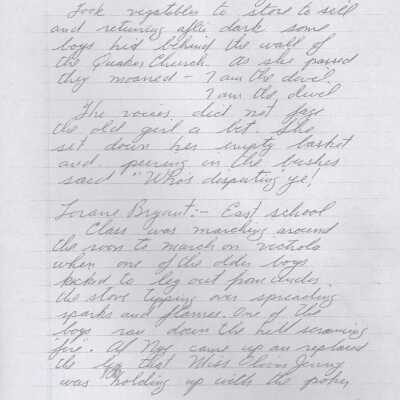 Took vegetables to store to sell
and returning after dark some
boys hid behind the wall of
the Quaker Church. As she passed
they moaned - I am the devil.
I am the devil
The voices did not faze
the old girl a bit. She
set down her empty basket
and peering in the bushes
said "Who's disputing ye!
Lorane Bryant:- East school
Class was marching around
the room to march on victrola
when one of the older boys
kicked to leg out from under
the stove tipping over spreading
sparks and flames. One of the
boys ran down the hall screaming
"fire". Al Noy came up an replaced
the leg that Miss Olivia Jenny
was holding up with the poker,